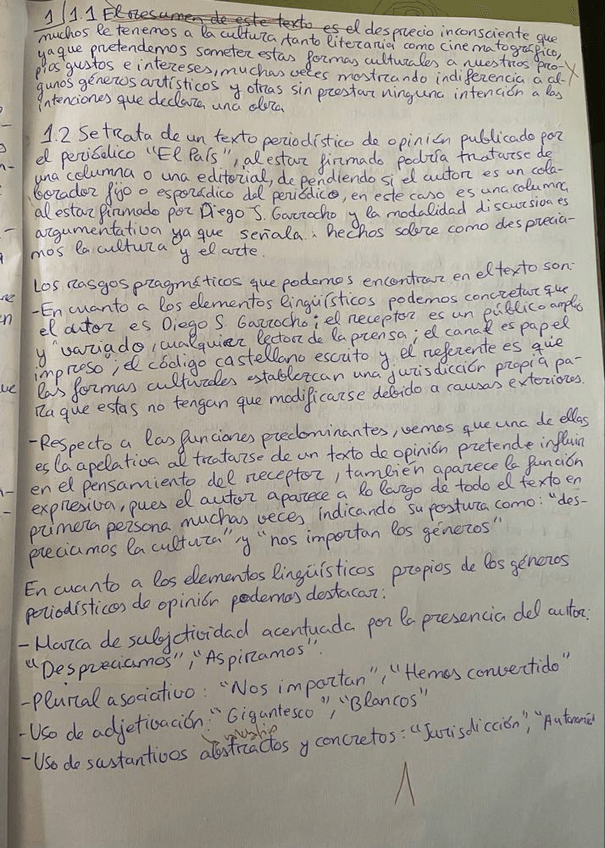 1/1.1 El resumen de este texto es el desprecio inconsciente que
muchos le tenemos a la cultura tanto literaria como cinematográfica,
ya que pretendemos someter estas formas culturales a nuestros pro-
pios gustos e intereses, muchas veces mostrando indiferencia a al-
gunos géneros artísticos y otras sin prestar ninguna intención a las
intenciones que declara una obra.
1.2 Se trata de un texto periodístico de opinión publicado por
el periódico "El País", al estar firmado podría tratarse de
una columna o una editorial, dependiendo si el autor es un cola-
borador fijo o esporádico del periódico, en este caso es una columna,
al estar firmado por Diego S. Garrocho y la modalidad discursiva es
argumentativa ya que señala hechos sobre como desprecia-
mos la cultura y el arte.
Los rasgos pragmáticos que podemos encontrar en el texto son:
-En cuanto a los elementos lingüísticos podemos concretar que
el autor es Diego S. Garrocho; el receptor es un público amplio
y variado, cualquier lector de la prensa; el canal es papel
impreso; el código castellano escrito y el referente es que
las formas culturales establezcan una jurisdicción propia pa-
ra que estas no tengan que modificarse debido a causas exteriores.
-Respecto a las funciones predominantes, vemos que una de ellas
es la apelativa al tratarse de un texto de opinión pretende influir
en el pensamiento del receptor, tambien aparece la función
expresiva, pues el autor aparece a lo largo de todo el texto en
primera persona muchas veces indicando su postura como: "des-
preciamos la cultura" y "nos importan los géneros"
En cuanto a los elementos lingüísticos propios de los géneros
periodísticos de opinión podemos destacar:
-Marca de subjetividad acentuada por la presencia del autor:
"Despreciamos", "Aspiramos".
-Plural asociativo: "Nos importan", "Hemos convertido"
-Uso de adjetivación: "Gigantesco", "Blancos"
-Uso de sustantivos abstractos y concretos: "Jurisdicción", "Autonomía